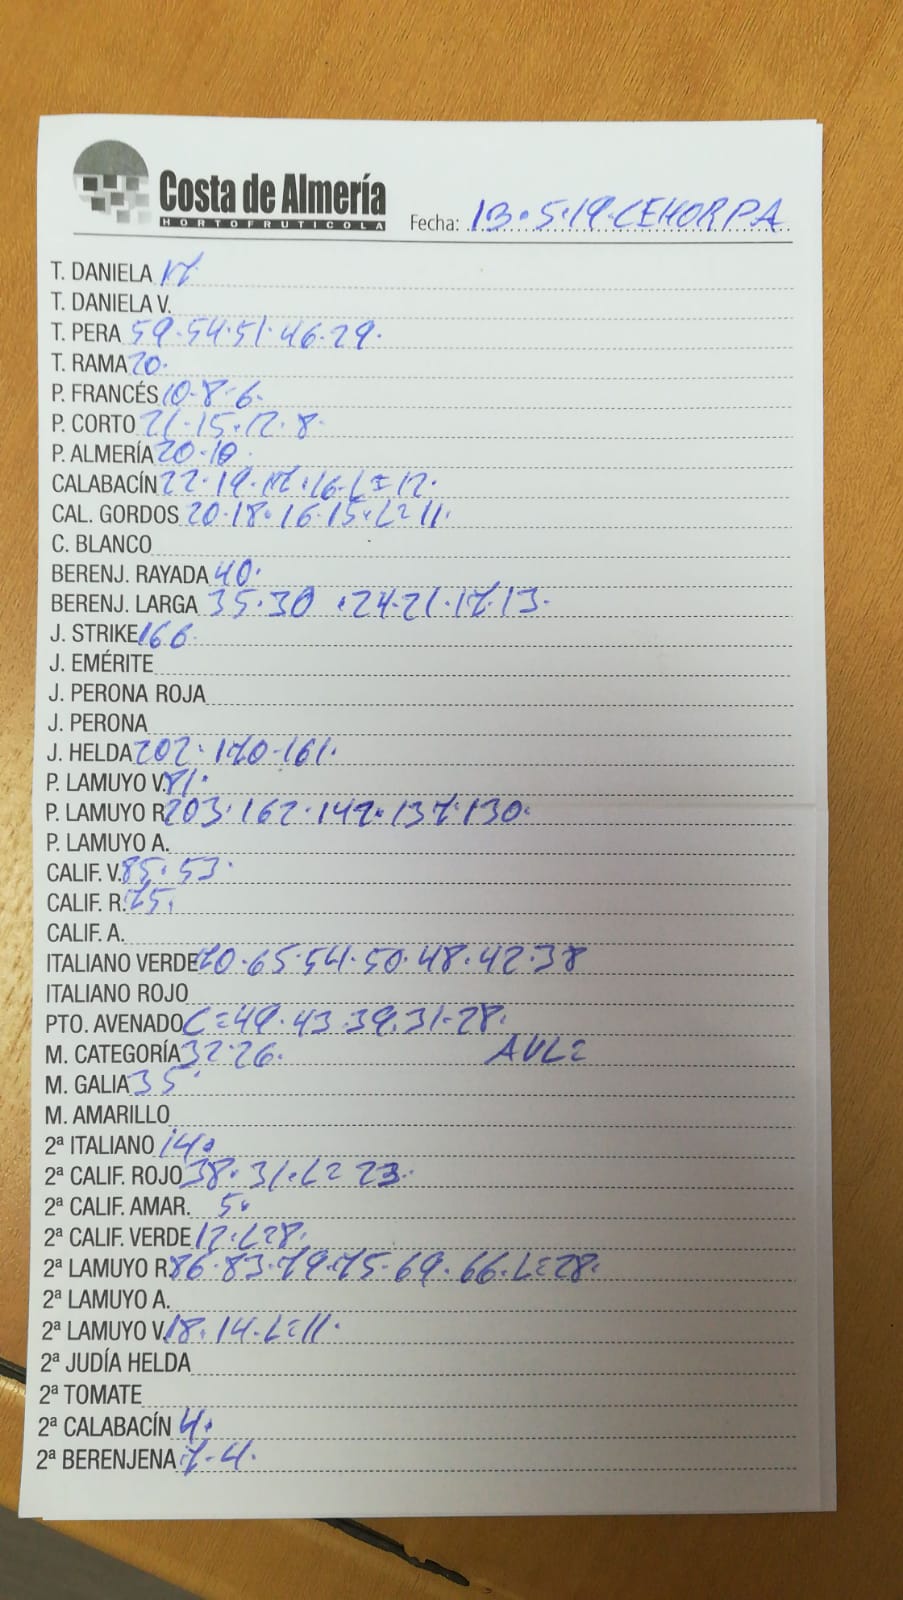 Costa de Almería
HORTOFRUTICOLA
Fecha: 13.5.19.CEHORPA
T. DANIELA 17
T. DANIELA V.
T. PERA 59.54.51.46.29.
T. RAMA 20.
P. FRANCÉS 10-8-6.
P. CORTO 21.15.12.8
P. ALMERÍA 20.10.
CALABACÍN 22.19.17.16.L=12.
CAL. GORDOS 20.18.16.15.L=11.
C. BLANCO
BERENJ. RAYADA 40.
BERENJ. LARGA 35.30 .24-21.17.13.
J. STRIKE 166.
J. EMÉRITE
J. PERONA ROJA
J. PERONA
J. HELDA 202.170-161.
P. LAMUYO V. 81.
P. LAMUYO R. 203.162.142.137.130.
P. LAMUYO A.
CALIF. V. 85.53.
CALIF. R. 75.
CALIF. A.
ITALIANO VERDE 70.65.54.50.48.42.38
ITALIANO ROJO
PTO. AVENADO C=49.43.39.31-28.
M. CATEGORÍA 32.26. AVL=
M. GALIA 35.
M. AMARILLO
2ª ITALIANO 14.
2ª CALIF. ROJO 38.31.L=23.
2ª CALIF. AMAR. 5.
2ª CALIF. VERDE 12.L=8.
2ª LAMUYO R. 86.83.79.75-69.66.L=28.
2ª LAMUYO A.
2ª LAMUYO V. 18.14.L=11.
2ª JUDÍA HELDA
2ª TOMATE
2ª CALABACÍN 4.
2ª BERENJENA 7-4.